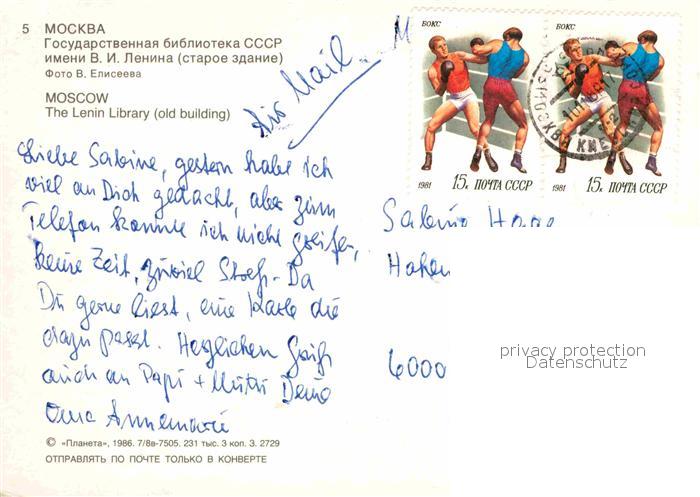 5 МОСКВА
Государственная библиотека СССР
имени В. И. Ленина (старое здание)
Фото В. Елисеева
MOSCOW
The Lenin Library (old building)
Air Mail
БОКС
1981 15к ПОЧТА СССР
БОКС
1981 15к ПОЧТА СССР
МОСКВА
Liebe Sabine, gestern habe ich
viel an Dich gedacht, aber zum
Telefon konnte ich nicht greifen,
keine Zeit, zuviel Streß. Da
Du gerne liest, eine Karte die
dazu passt. Herzlichen Gruß
auch an Papi + Mutti Deine
Oma Annemarie
Sabine
6000
privacy protection
Datenschutz
© «Планета», 1986. 7/8в-7505. 231 тыс. 3 коп. З. 2729
ОТПРАВЛЯТЬ ПО ПОЧТЕ ТОЛЬКО В КОНВЕРТЕ